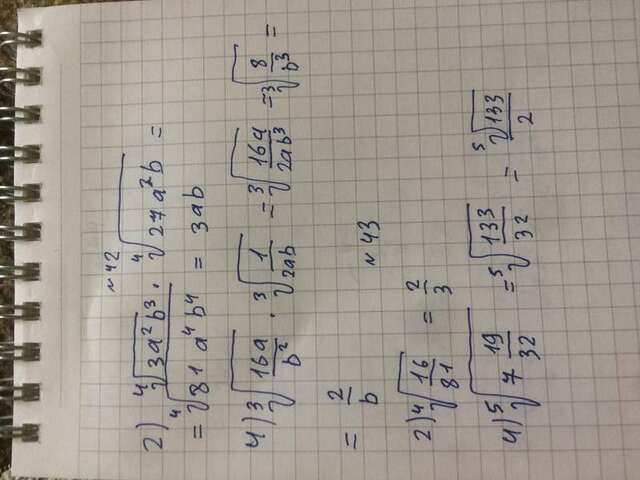 №42
2) ⁴√(3a²b³) · ⁴√(27a²b) =
= ⁴√(81 a⁴b⁴) = 3ab
4) ³√(16a/b²) · ³√(1/2ab) = ³√(16a/2ab³) = ³√(8/b³) =
= 2/b
№43
2) ⁴√(16/81) = 2/3
4) ⁵√(7 19/32) = ⁵√(133/32) = ⁵√133/2